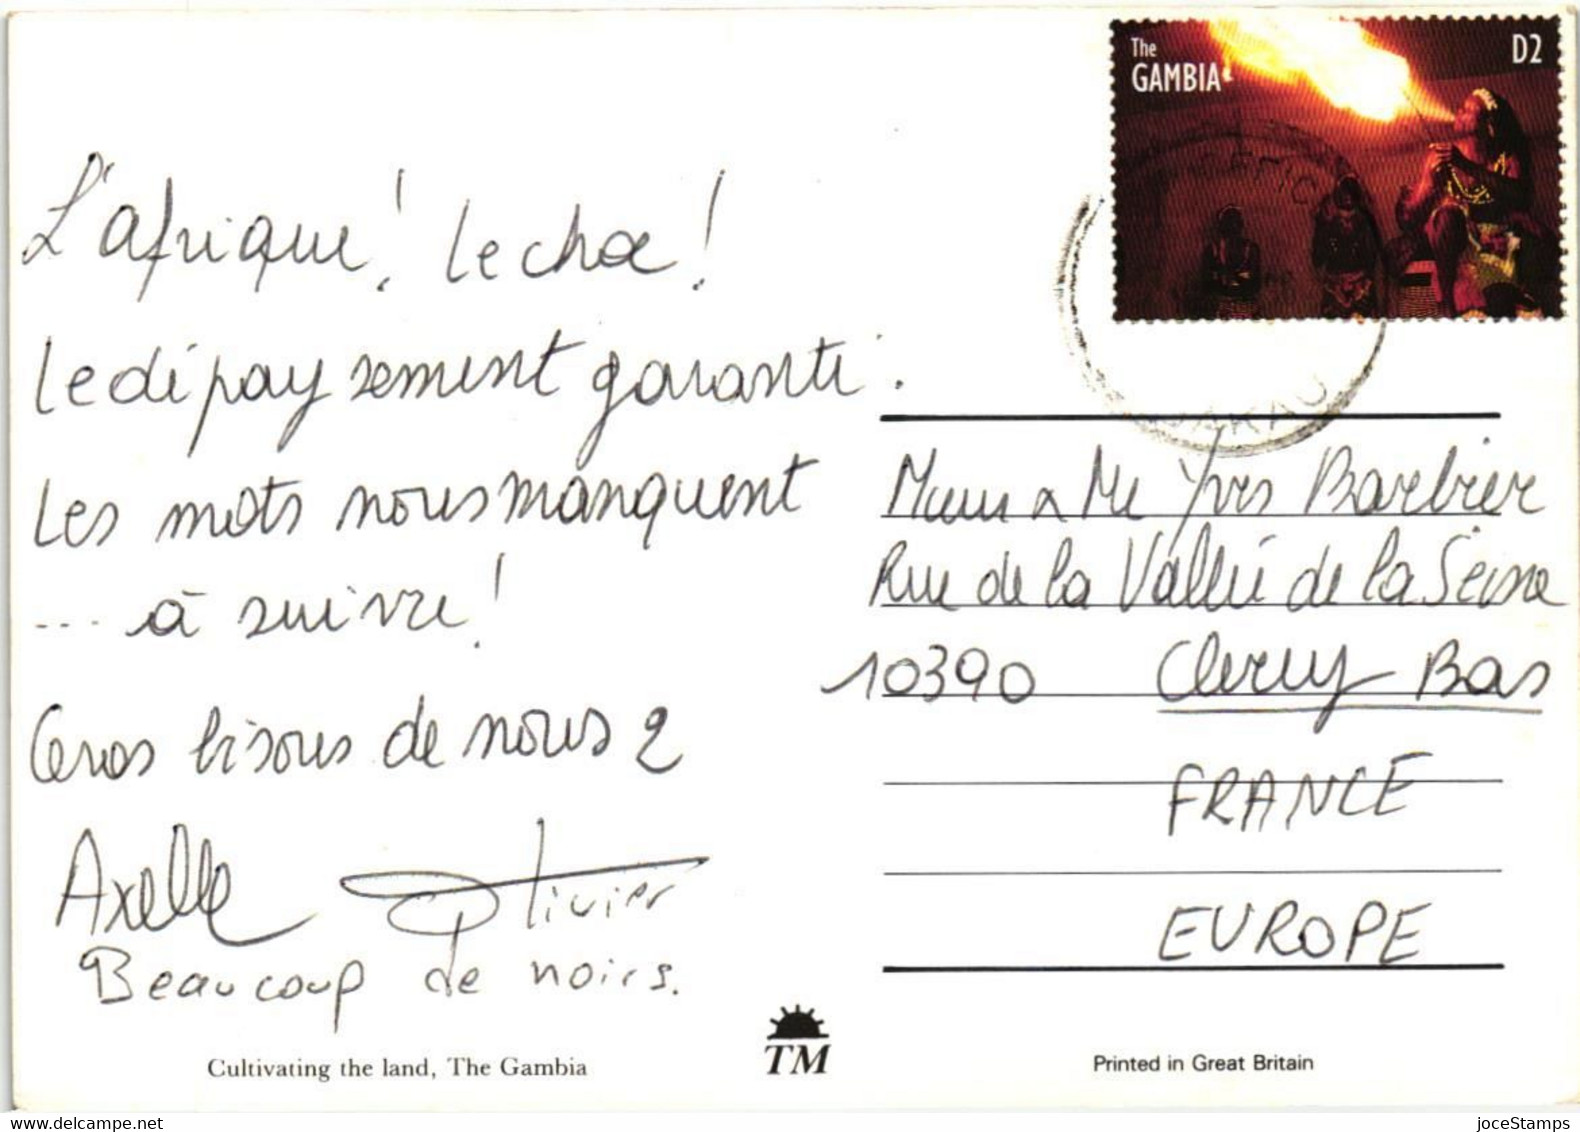 The
GAMBIA
D2
L'afrique! le choc!
Le dépaysement garanti.
Les mots nous manquent
... à suivre!
Gros bisous de nous 2
Axelle Olivier
Beaucoup de noirs.
BAKAU
& Me Yves Barbier
Rue de la Vallée de la Seine
10390 Clerey Bas
FRANCE
EUROPE
Cultivating the land, The Gambia
TM
Printed in Great Britain
www.delcampe.net
joceStamps